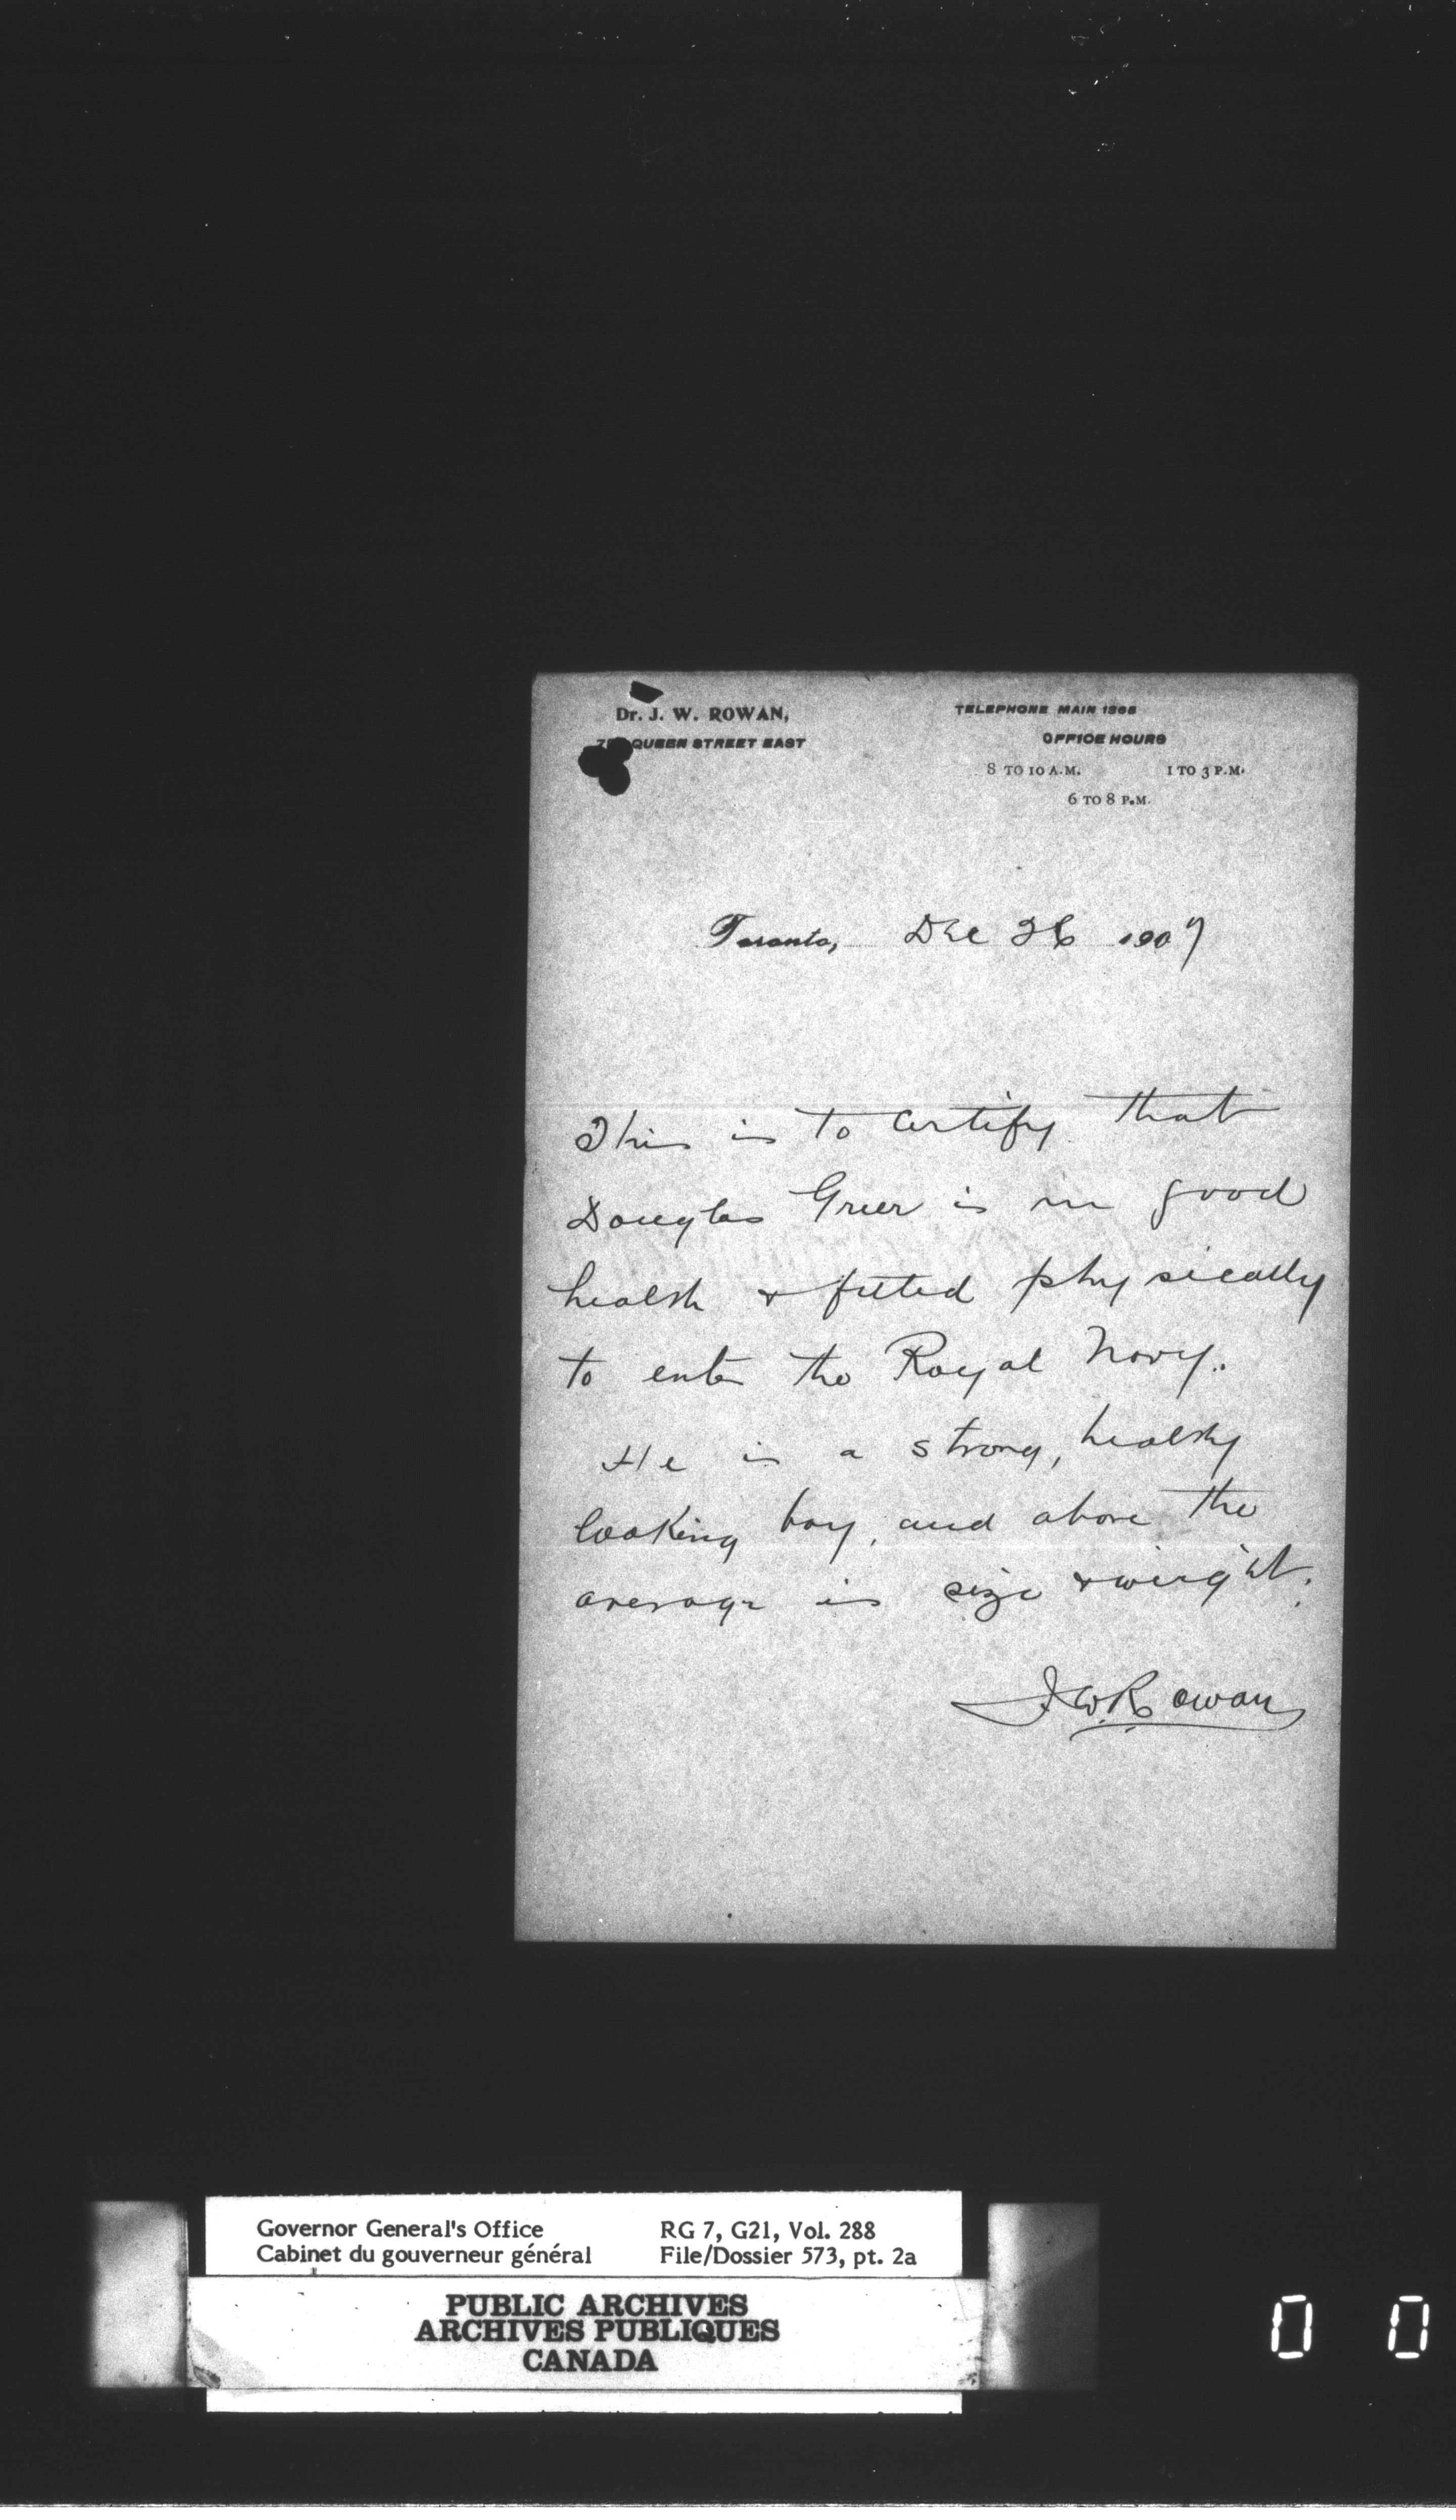 Dr. J. W. ROWAN,
QUEEN STREET EAST
TELEPHONE MAIN 1365
OFFICE HOURS
8 TO 10 A.M. 1 TO 3 P.M.
6 TO 8 P.M.
Toronto, Dec 26 1907
This is to certify that
Douglas Grier is in good
health & fitted physically
to enter the Royal Navy.
He is a strong, healthy
looking boy, and above the
average in size & weight.
J. W. Rowan
Governor General's Office RG 7, G21, Vol. 288
Cabinet du gouverneur général File/Dossier 573, pt. 2a
PUBLIC ARCHIVES
ARCHIVES PUBLIQUES
CANADA
0 0